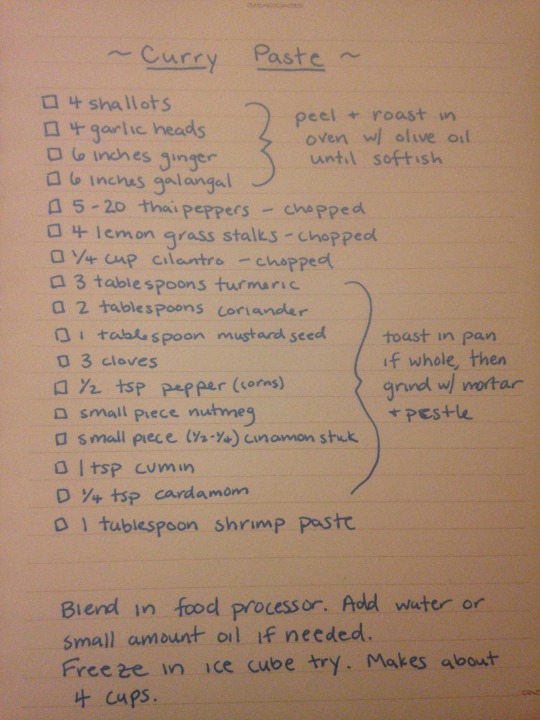 ~ Curry Paste ~
4 shallots
4 garlic heads
6 inches ginger
6 inches galangal
peel + roast in
oven w/ olive oil
until softish
5-20 thai peppers - chopped
4 lemon grass stalks - chopped
1/4 cup cilantro - chopped
3 tablespoons turmeric
2 tablespoons coriander
1 tablespoon mustard seed
3 cloves
1/2 tsp pepper (corns)
small piece nutmeg
small piece (1/2-1/4) cinamon stick
1 tsp cumin
1/4 tsp cardamom
toast in pan
if whole, then
grind w/ mortar
+ pestle
1 tablespoon shrimp paste
Blend in food processor. Add water or
small amount oil if needed.
Freeze in ice cube try. Makes about
4 cups.